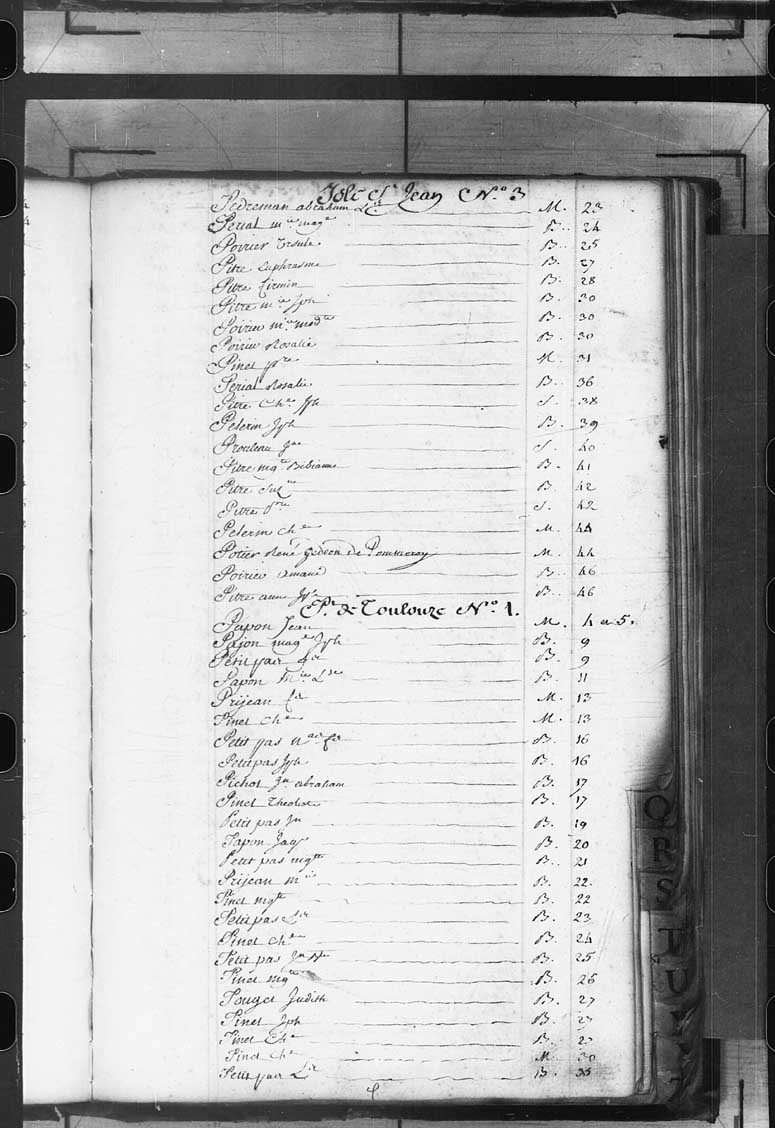 Isle St Jean N.o 3
Pedreman abraham Ls M. 23
Perial m.ie mag.e B. 24
Poirier Ursule B. 25
Pitre Euphrasme B. 27
Pitre firmin B. 28
Pitre m.ie Jph B. 30
Poirier m.ie mod.te B. 30
Poirier Rosalie B. 30
Pinet M. 31
Perial Rosalie B. 36
Pitre Ch.e Jph S. 38
Pelerin Jph B. 39
Prouteau J.ne S. 40
Pitre mg.te Bibianne B. 41
Pitre Suz.ne B. 42
Pitre S. 42
Pelerin Ch.e M. 44
Potier René Gedeon de Pommeroy M. 44
Poirier amand B. 46
Pitre anne Jph B. 46
P.t de Toulouze N.o 1.
Papon Jean M. 4 a 5.
Pajon mag.e Jph B. 9
Petit pas B. 9
Papon m.ie L.se B. 11
Prijean M. 13
Pinet Ch.e M. 13
Petit pas B. 16
Petitpas Jph B. 16
Pichot J.n abraham B. 17
Pinet Theodose B. 17
Petit pas J.n B. 19
Papon Jaq B. 20
Petit pas mg.tte B. 21
Prijean m.is B. 22.
Pinet mg.te B. 22
Petitpas L.s B. 23
Pinet Ch.e B. 24
Petit pas J.n B. 25
Pinet mg.te B. 26
Pouget Judith B. 27
Pinet Jph B. 27
Pinet Ch.e B. 27
Pinet Ch.e M. 30
Petit pas L.s B. 35
Q
R
S
T
U